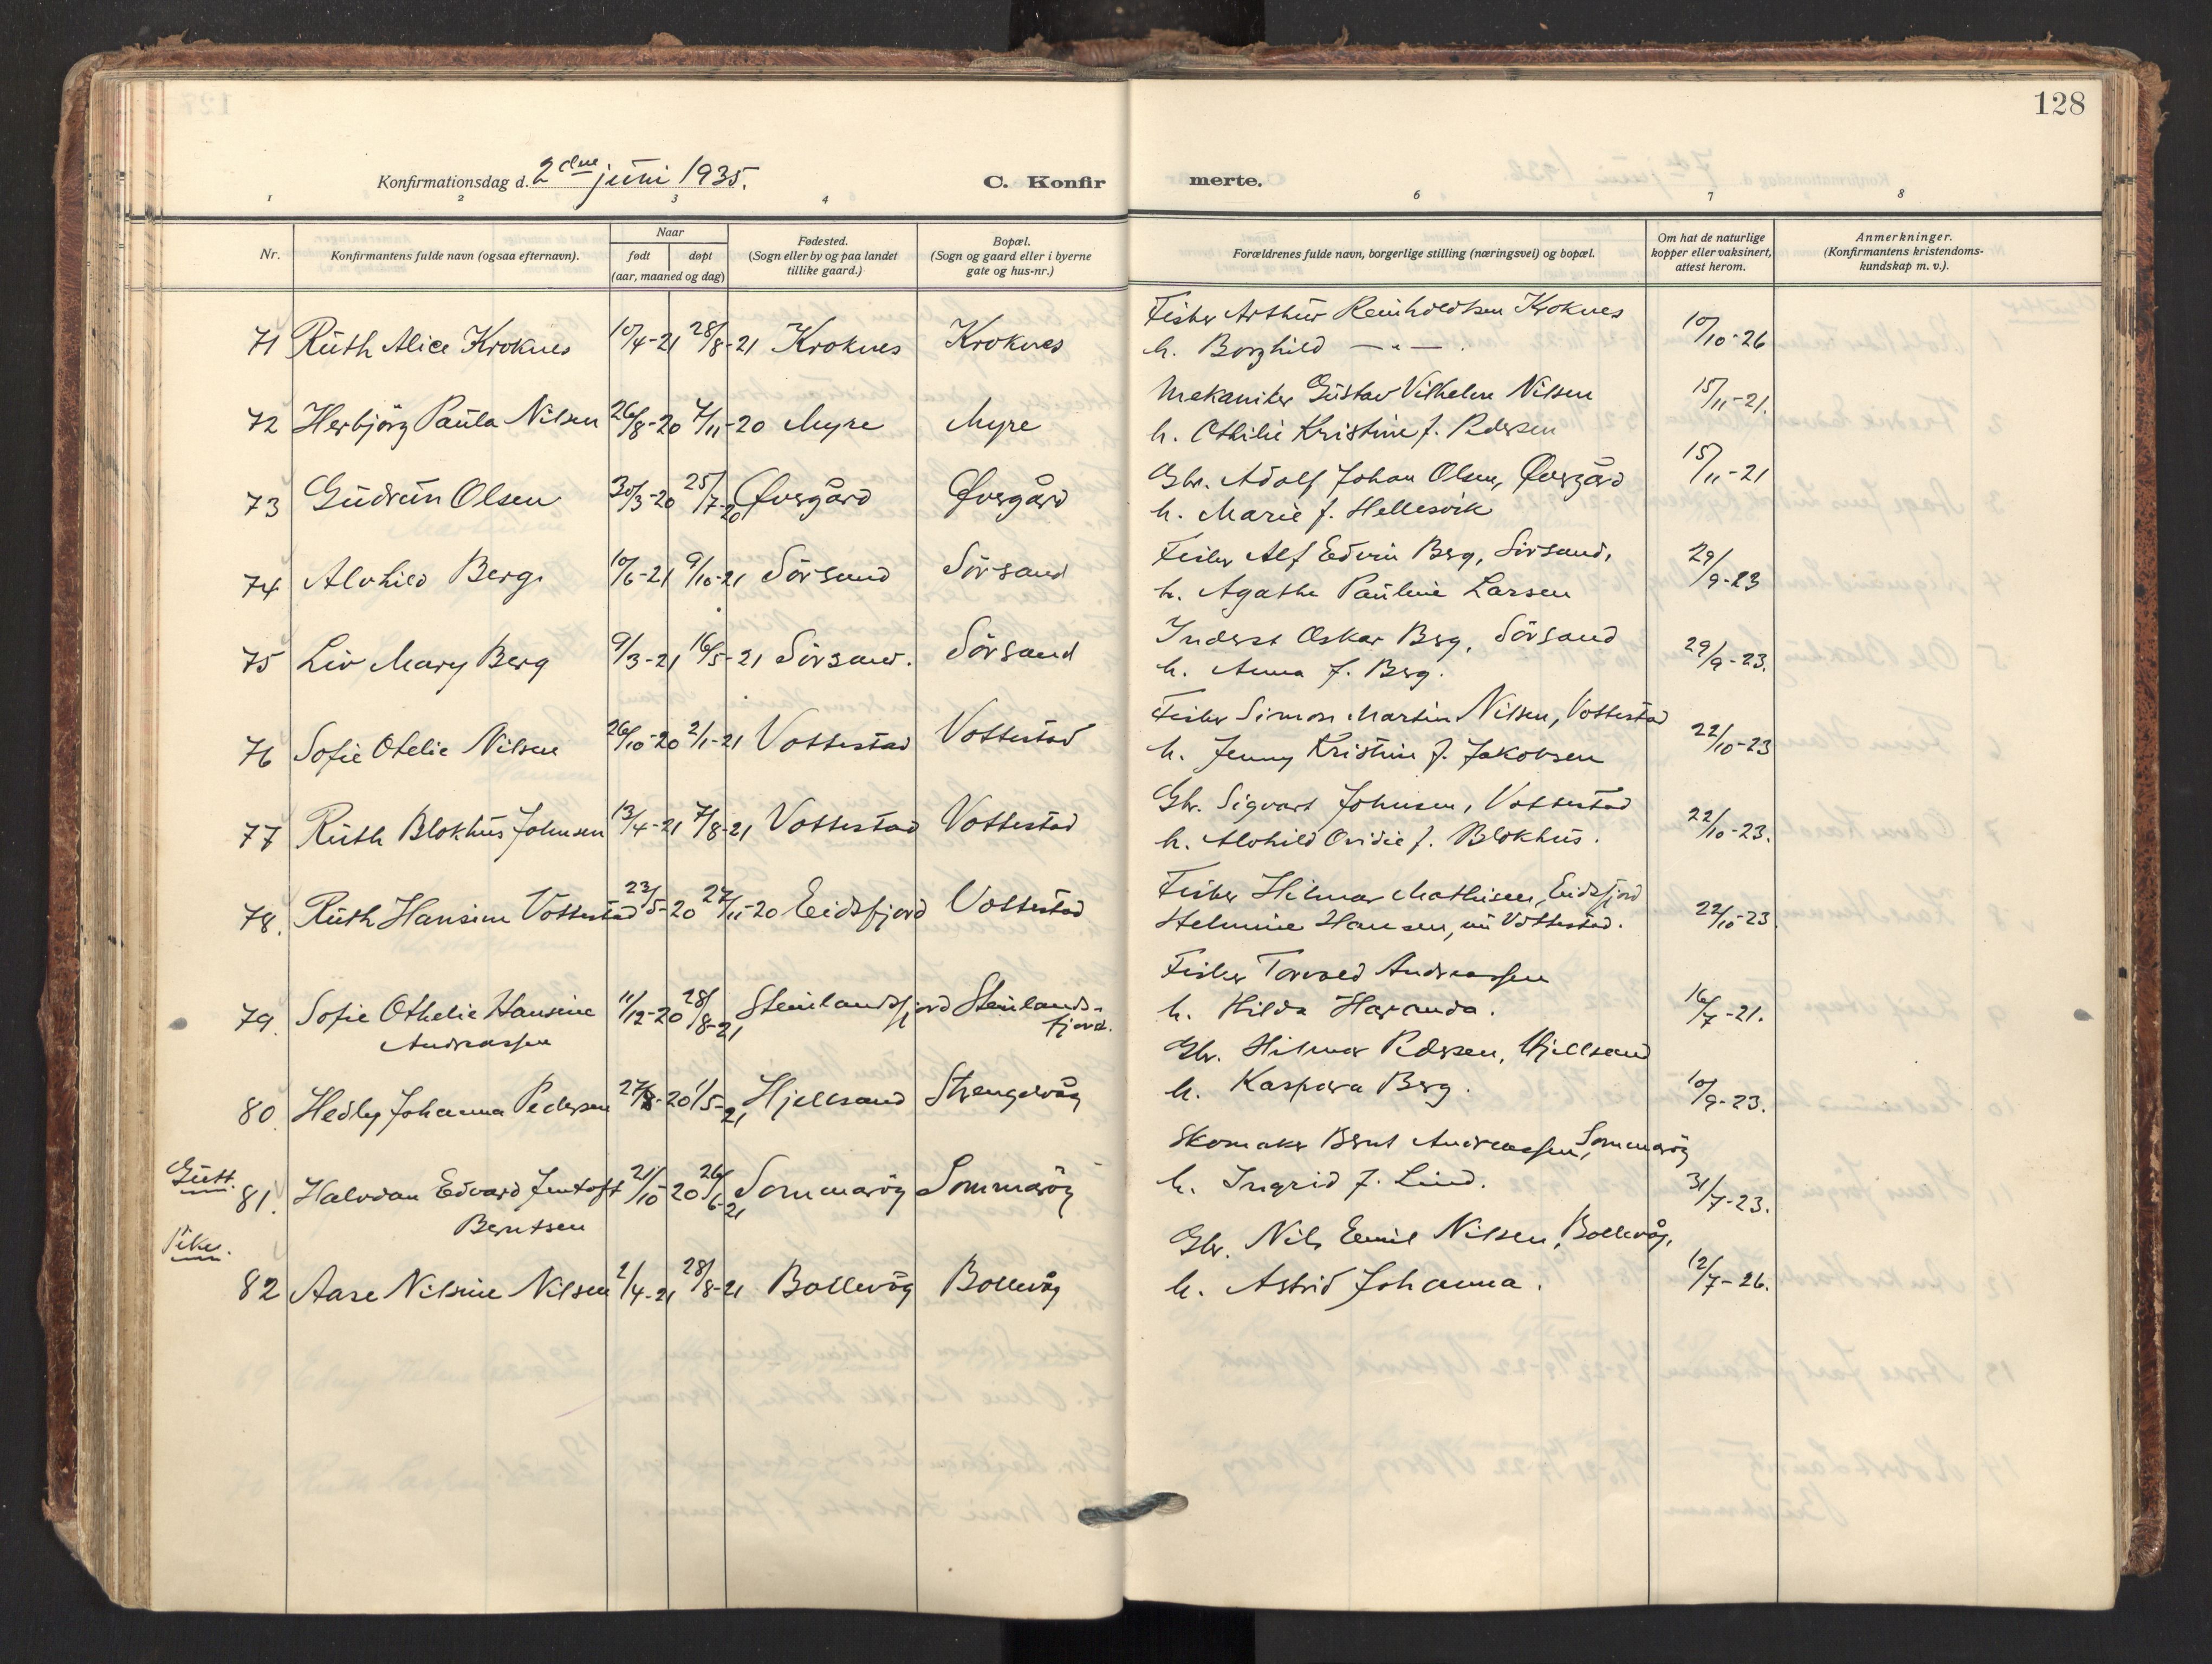 128
Konfirmationsdag d. 2den juni 1935.
C. Konfir
merte.
1 2 3 4 6 7 8
Nr.
Konfirmantens fulde navn (ogsaa efternavn).
Naar
født
døpt
(aar, maaned og dag)
Fødested.
(Sogn eller by og paa landet
tillike gaard.)
Bopæl.
(Sogn og gaard eller i byerne
gate og hus-nr.)
Forældrenes fulde navn, borgerlige stilling (næringsvei) og bopæl.
Om hat de naturlige
kopper eller vaksinert,
attest herom.
Anmerkninger.
(Konfirmantens kristendoms-
kundskap m. v.).
71 Ruth Alice Kroknes 10/4-21 28/8-21 Kroknes Kroknes
Fisker Arthur Reinholdtsen Kroknes
h. Borghild —„— . 10/10-26
72 Herbjörg Paula Nilsen 26/8-20 7/11-20 Myre Myre
Mekaniker Gustav Vilhelm Nilsen 15/11-21.
h. Othilie Kristine f. Pedersen
73 Gudrun Olsen 30/3-20 25/7-20 Øvergård Øvergård
Gbr. Adolf Johan Olsen, Øvergård 15/11-21
h. Marie f. Hellesvik
74 Alvhild Berg. 10/6-21 9/10-21 Sörsand Sörsand
Fisker Alf Edvin Berg, Sörsand, 29/9-23
h. Agathe Pauline Larsen
75 Liv Mary Berg 9/3-21 16/5-21 Sörsand. Sörsand
Inderst Oskar Berg, Sörsand 29/9-23.
h. Anna f. Berg.
76 Sofie Otelie Nilsen 26/10-20 2/1-21 Vottestad Vottestad
Fisker Simon Martin Nilsen, Vottestad 22/10-23
h. Jenny Kristine f. Jakobsen
77 Ruth Blokhus Johnsen 13/4-21 7/8-21 Vottestad Vottestad
Gbr. Sigvart Johnsen, Vottestad 22/10-23.
h. Alvhild Ovidie f. Blokhus.
78. Ruth Hansine Vottestad 23/5-20 27/11-20 Eidsfjord Vottestad
Fisker Hilmar Mathisen, Eidsfjord 22/10-23
Helmine Hansen, nu Vottestad.
79. Sofie Othelie Hansine 11/12-20 28/8-21 Steinlandsfjord Steinlands-
Andreassen fjord.
Fisker Torvald Andreassen
h. Hilda Haranda. 16/7-21.
80. Hedly Johanna Pedersen -20 1/5-21 Hjellsand Strengelvåg
Gbr. Hilmar Pedersen, Hjellsand
h. Kaspara Berg. 10/9-23.
Gutt.
81. Halvdan Edvard Jentoft 21/10-20 26/6-21 Sommarög Sommarög
Berntsen
Skomaker Bernt Andreassen, Sommarög
h. Ingrid f. Lind. 31/7-23.
Pike.
82 Aase Nilsine Nilsen 2/4-21 28/8-21 Bollevåg Bollevåg
Gbr. Nils Emil Nilsen, Bollevåg,
h. Astrid Johanna. 12/7-26.